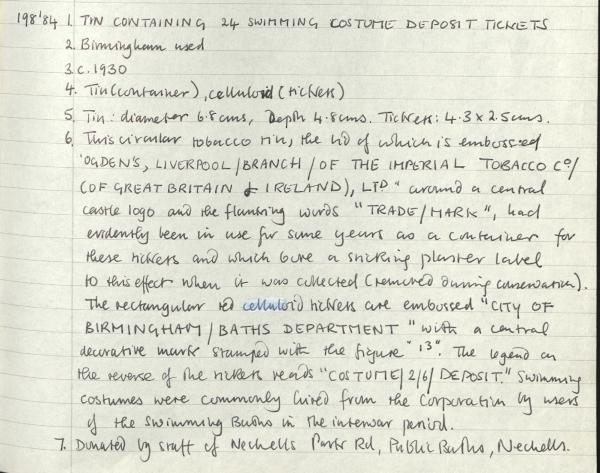 198'84 1. TIN CONTAINING 24 SWIMMING COSTUME DEPOSIT TICKETS
2. Birmingham used
3. c. 1930
4. Tin (container), celluloid (tickets)
5. Tin: diameter 6.8cms, Depth 4.8cms. Tickets: 4.3 x 2.5cms.
6. This circular tobacco tin, the lid of which is embossed
'OGDEN'S, LIVERPOOL/BRANCH/OF THE IMPERIAL TOBACCO Co/
(OF GREAT BRITAIN & IRELAND), LTD." around a central
castle logo and the flanking words "TRADE/MARK", had
evidently been in use for some years as a container for
these tickets and which bore a sticking plaster label
to this effect when it was collected (removed during conservation).
The rectangular red celluloid tickets are embossed "CITY OF
BIRMINGHAM/BATHS DEPARTMENT" with a central
decorative mark stamped with the figure "13". The legend on
the reverse of the tickets reads "COSTUME/2/6/DEPOSIT." Swimming
costumes were commonly hired from the Corporation by users
of the Swimming Baths in the interwar period.
7. Donated by staff of Nechells Park Rd, Public Baths, Nechells.